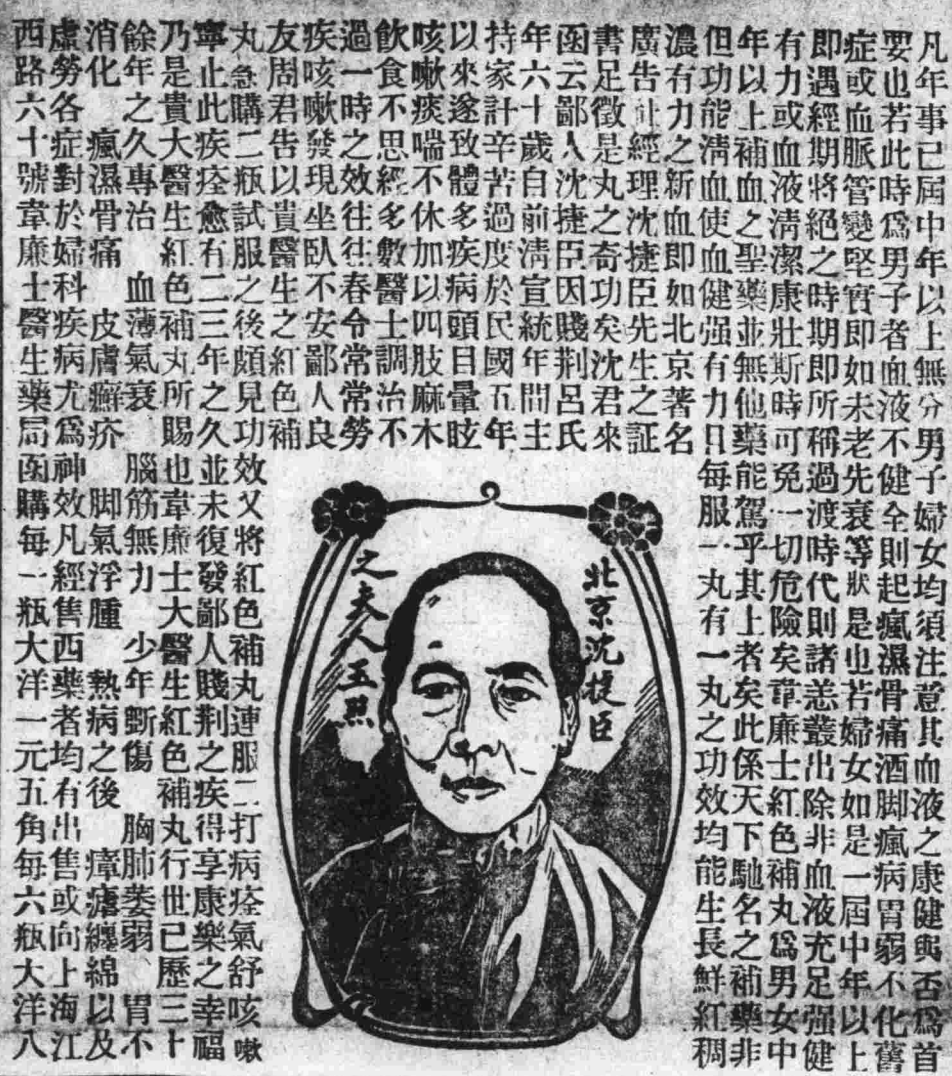 凡年事已屆中年以上無分男子婦女均須注意其血液之康健與否爲首
要也若此時爲男子者血液不健全則起瘋濕骨痛酒脚瘋病胃弱不化舊
症或血脈管變堅實即如未老先衰等狀是也若婦女如是一屆中年以上
即遇經期將絕之時期即所稱過渡時代則諸恙叢出除非血液充足强健
有力或血液淸潔康壯斯時可免一切危險矣韋廉士紅色補丸爲男女中
年以上補血之聖藥並無他藥能駕乎其上者矣此係天下馳名之補藥非
但功能淸血使血健强有力日每服一丸有一丸之功效均能生長鮮紅稠
濃有力之新血即如北京著名
廣告社經理沈捷臣先生之証
書足徵是丸之奇功矣沈君來
函云鄙人沈捷臣因賤荆呂氏
年六十歲自前淸宣統年間主
持家計辛苦過度於民國五年
以來遂致體多疾病頭目暈眩
咳嗽痰喘不休加以四肢麻木
飲食不思經多數醫士調治不
過一時之效往往春令常常勞
疾咳嗽發現坐臥不安鄙人良
友周君告以貴醫生之紅色補
丸急購二瓶試服之後頗見功效又將紅色補丸連服二打病痊氣舒咳嗽
寧止此疾痊愈有二三年之久並未復發鄙人賤荆之疾得享康樂之幸福
乃是貴大醫生紅色補丸所賜也韋廉士大醫生紅色補丸行世已歷三十
餘年之久專治 血薄氣衰 腦筋無力 少年斲傷 胸肺萎弱 胃不
消化 瘋濕骨痛 皮膚癬疥 脚氣浮腫 熱病之後 瘴瘧纏綿以及
虛勞各症對於婦科疾病尤爲神效凡經售西藥者均有出售或向上海江
西路六十號韋廉士醫生藥局函購每一瓶大洋一元五角每六瓶大洋八
北京沈捷臣
之夫人玉照